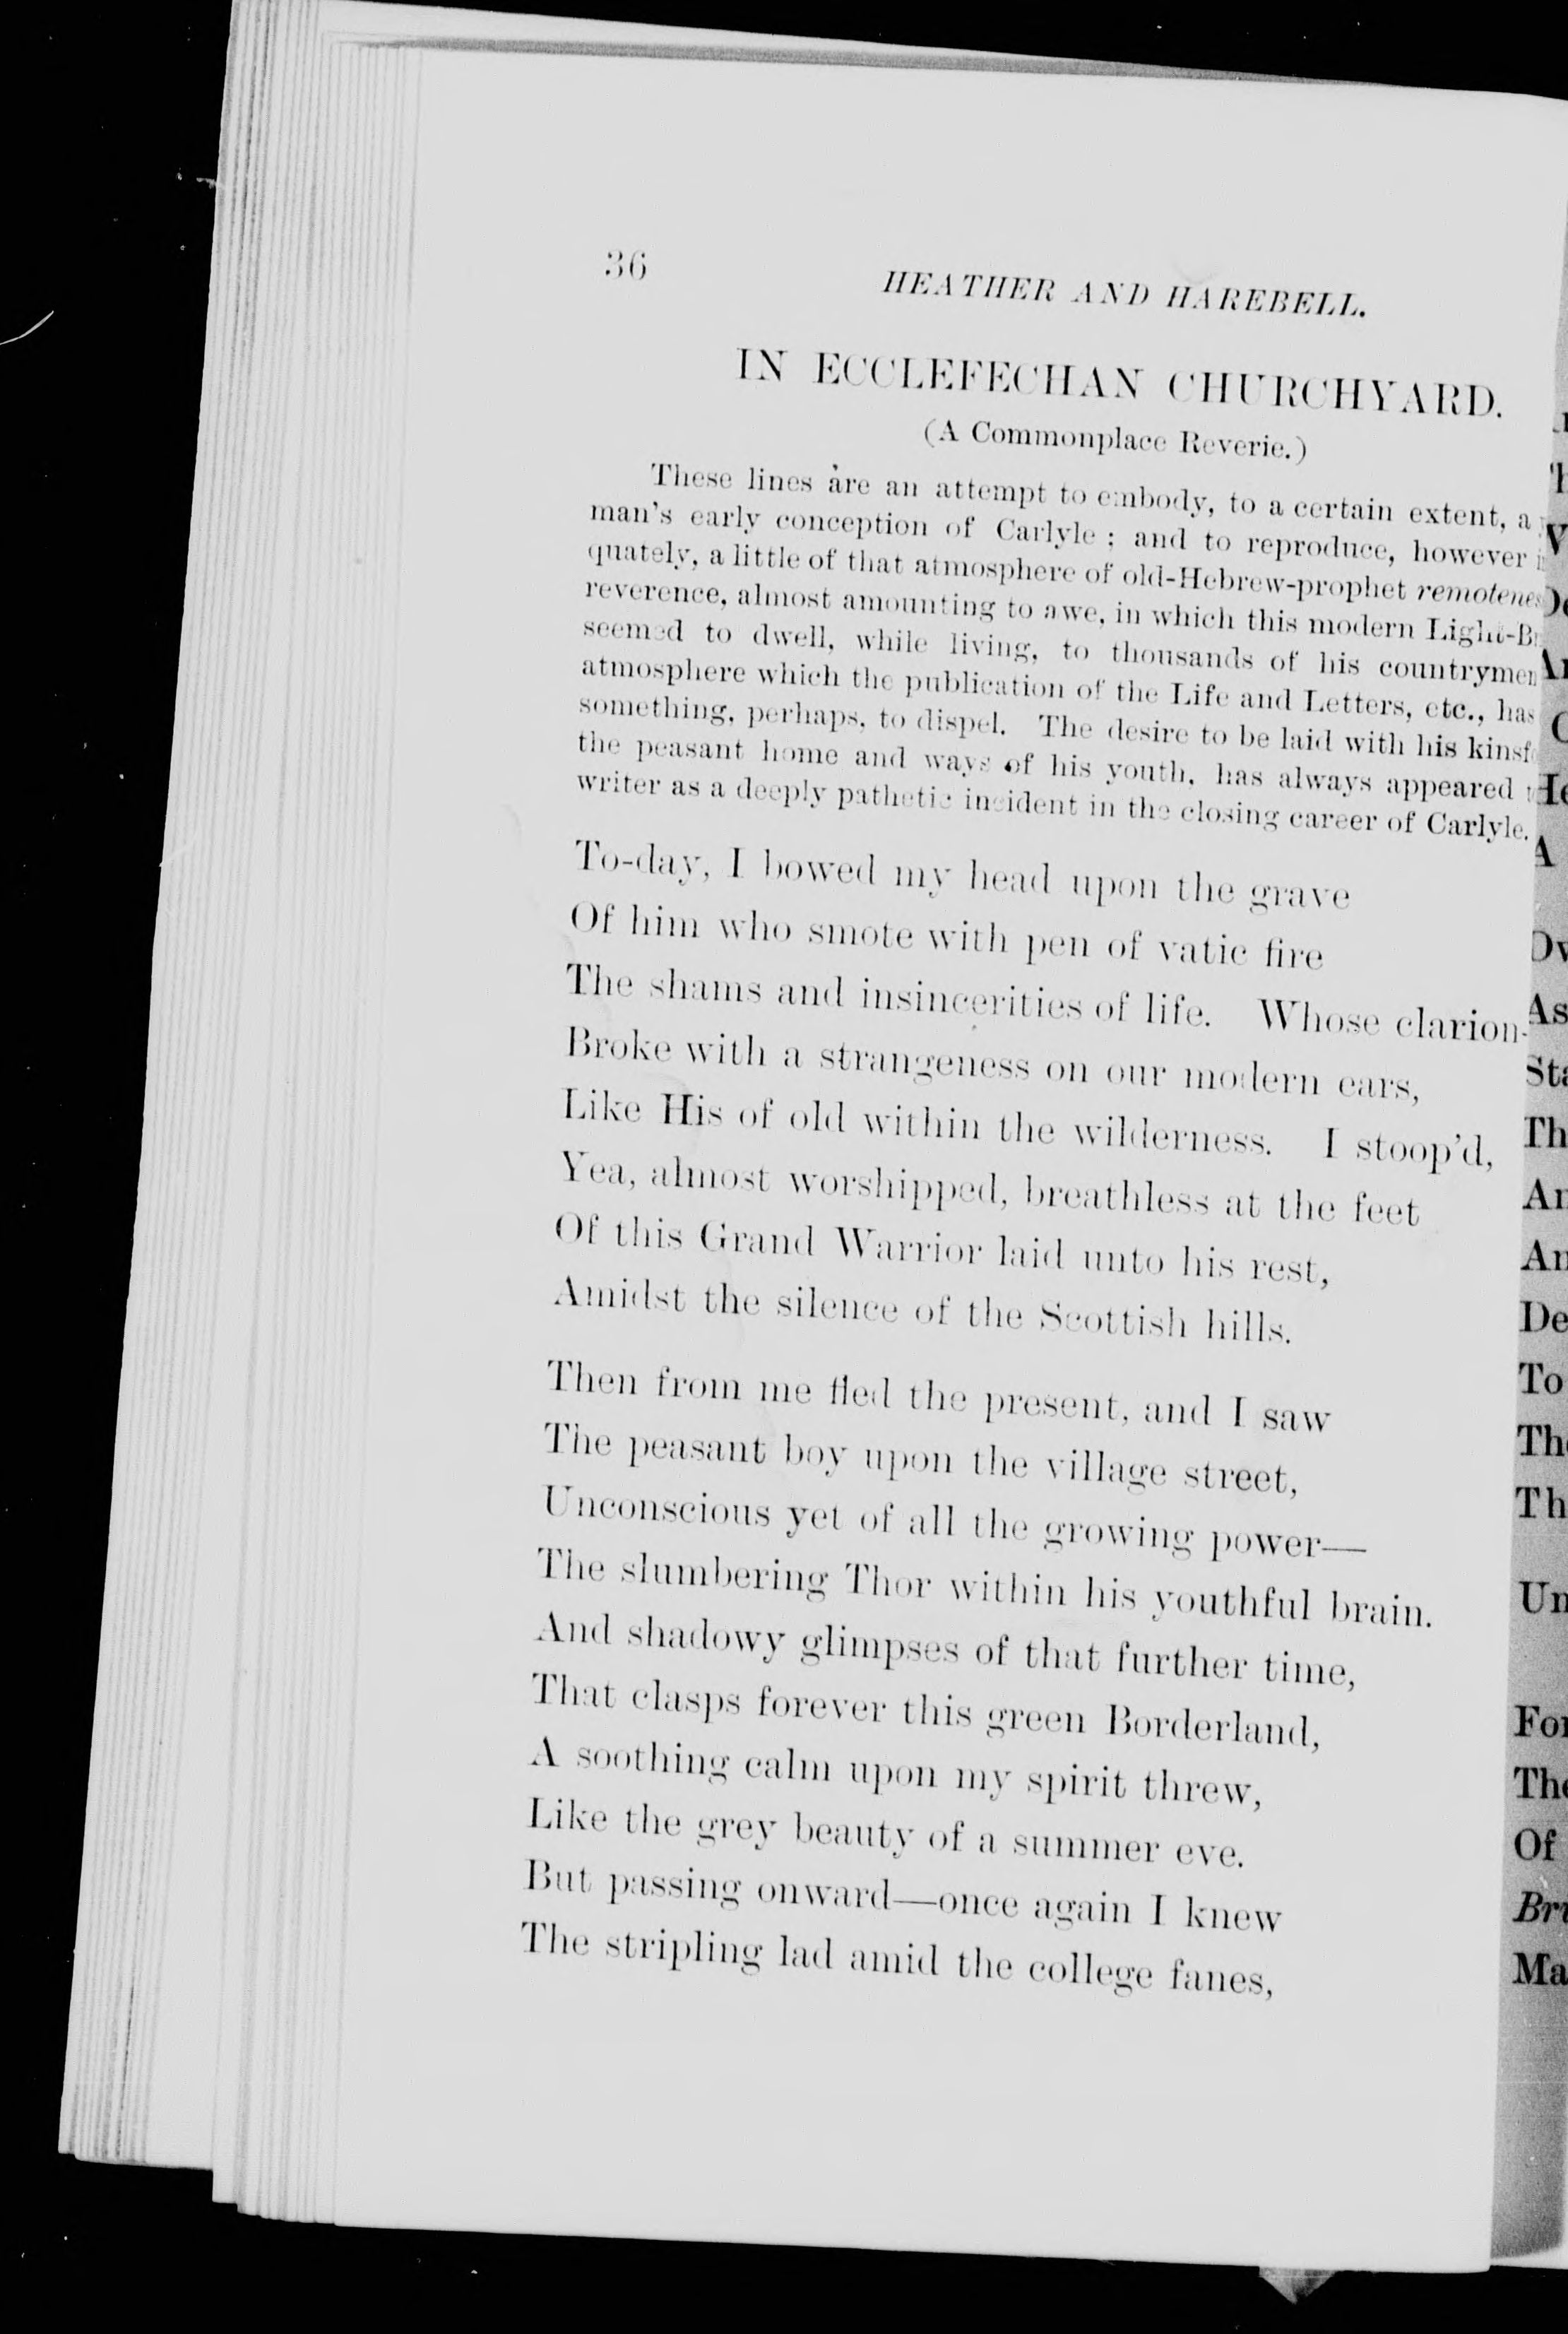 36
HEATHER AND HAREBELL.
IN ECCLEFECHAN CHURCHYARD.
(A Commonplace Reverie.)
These lines are an attempt to embody, to a certain extent, a
man's early conception of Carlyle; and to reproduce, however
quately, a little of that atmosphere of old-Hebrew-prophet remotenes
reverence, almost amounting to awe, in which this modern Light-B
seemed to dwell, while living, to thousands of his countrymen
atmosphere which the publication of the Life and Letters, etc., has
something, perhaps, to dispel. The desire to be laid with his kinsf
the peasant home and ways of his youth, has always appeared
writer as a deeply pathetic incident in the closing career of Carlyle.
To-day, I bowed my head upon the grave
Of him who smote with pen of vatic fire
The shams and insincerities of life. Whose clarion-
Broke with a strangeness on our modern ears,
Like His of old within the wilderness. I stoop'd,
Yea, almost worshipped, breathless at the feet
Of this Grand Warrior laid unto his rest,
Amidst the silence of the Scottish hills.
Then from me fled the present, and I saw
The peasant boy upon the village street,
Unconscious yet of all the growing power—
The slumbering Thor within his youthful brain.
And shadowy glimpses of that further time,
That clasps forever this green Borderland,
A soothing calm upon my spirit threw,
Like the grey beauty of a summer eve.
But passing onward—once again I knew
The stripling lad amid the college fanes,
As
Sta
Th
An
An
De
To
Th
Th
Un
For
The
Of
Bru
Ma